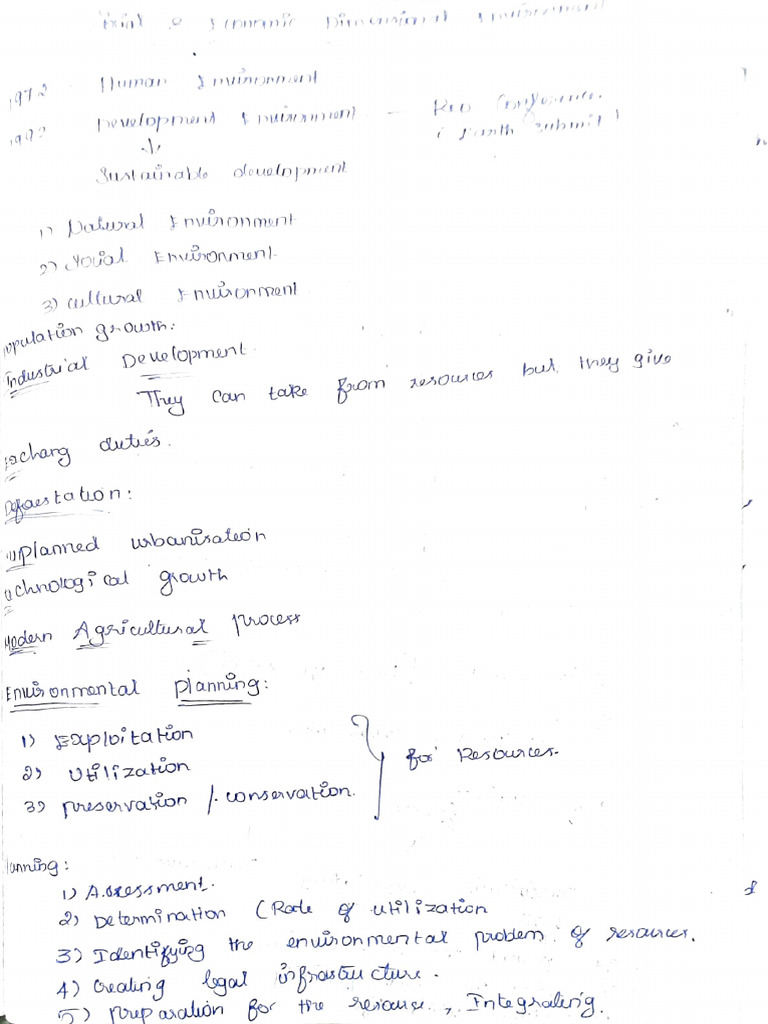 Economic Dimensional Environment
1972 Human Environment
1992 Development Environment — Rio Conference
( Earth submit )
↓
Sustainable development
1) Natural Environment
2) Social Environment
3) cultural Environment
opulation growth:
Industrial Development
They can take from resources but they give
chang duties.
Deforestation:
unplanned urbanisation
echnological growth
Modern Agricultural process
Environmental Planning:
1) Exploitation
2) Utilization
3) preservation / conservation.
for Resources.
lanning:
1) Assessment.
2) Determination (Rate of utilization
3) Identifying the environmental problem of resources.
4) Creating legal infrastructure.
5) preparation for the resource, Integrating.